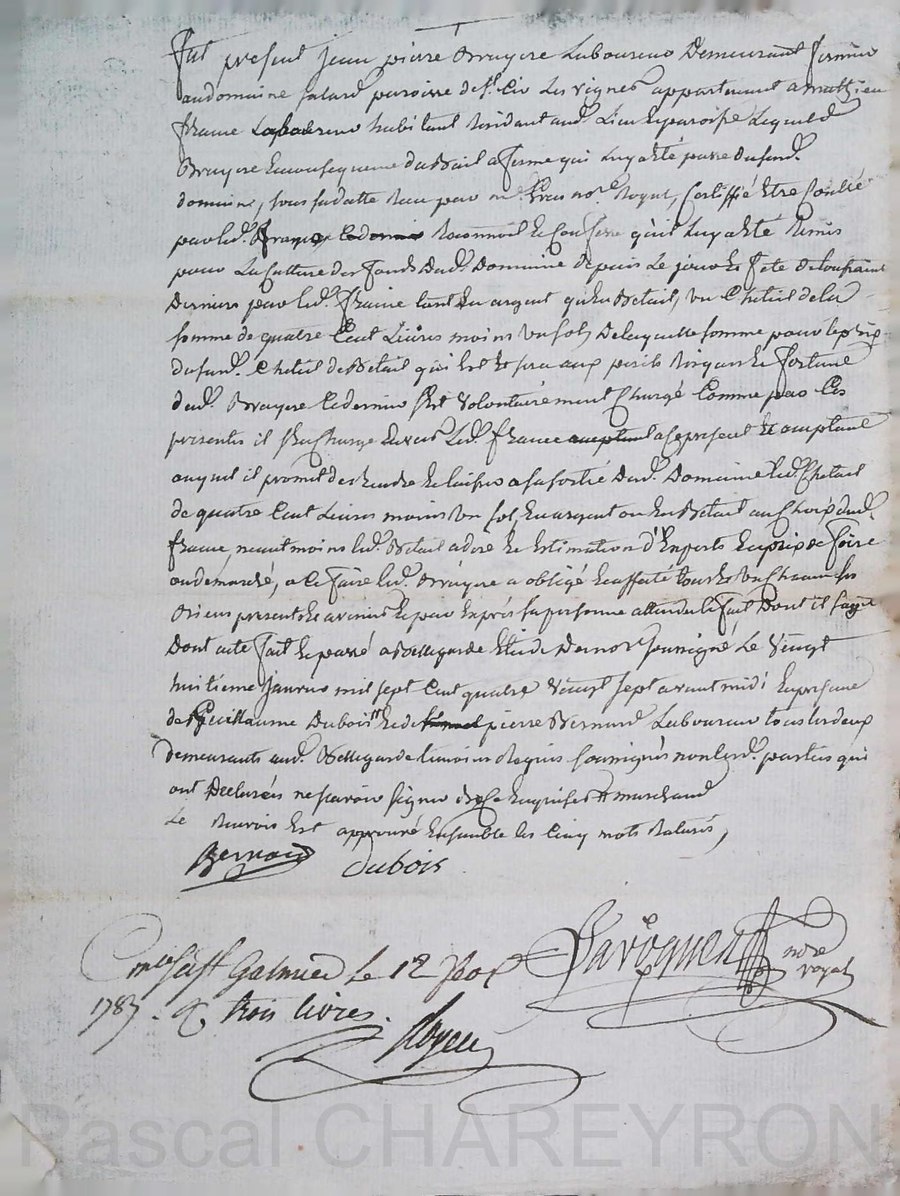 fut present jean pierre Bruyere Laboureur Demeurant fermier
au domaine paroisse de st. Cir Les vignes appartenant a mathieu
france Laboureur habitant Residant aud. Lieu & paroisse Lequel d.
Bruyere En consequence du Bail a ferme qui Luy a été passé dususd.
domaine, sous sa datte Recu par me. nore. Royal, Certiffié Être Contlé
par led. france ce dernier Reconnoit & Confesse qu'il Luy a été Remis
pour La Culture des fonds dud. Domaine depuis Le jour & fete de toussaint
Derniere par led. france tant En argent qu'En Bétail, un Cheteil de la
somme de quatre Cent Livres moins un sol, De laquelle somme pour le prix
dususd. Cheteil de Bétail qui Est & sera aux perils Risques & fortune
dud. Bruyere Ce dernier s'Est Volontairement Chargé Comme par Ces
presentes il se Charge Envers Led. france acceptant a ce present &
auquel il promet de rendre & laisser a sa sortie Dud. Domaine led. Cheteil
de quatre Cent Livres moins un sol, En argent ou En Bétail au Choix dud.
france, neant moins led. Bétail a dire & Estimation d'Experts En prix de foire
ou de marché, a Ce faire led. Bruyere a obligé & affecté tous & un Chacun ses
Biens presents & avenir & par Exprés sa personne attendu le fait Dont il s'agit
Dont acte fait & passé a Bellegarde Etude De nore. soussigné, Le Vingt
huitieme janvier mil sept Cent quatre Vingt sept avant midi En presence
de sr. Guillaume Dubois & de pierre Bernard Laboureur tous les deux
demeurants aud. Bellegarde temoins Requis soussignés non les d. parties qui
ont Declarés ne savoir signer de ce Enquises # marchand
Le Renvois Est approuvé Ensemble les Cinq mots Raturés,
Bernard Dubois
Laroque nore royal
Cmle a st Galmier Le 12
1787. R. trois livres.